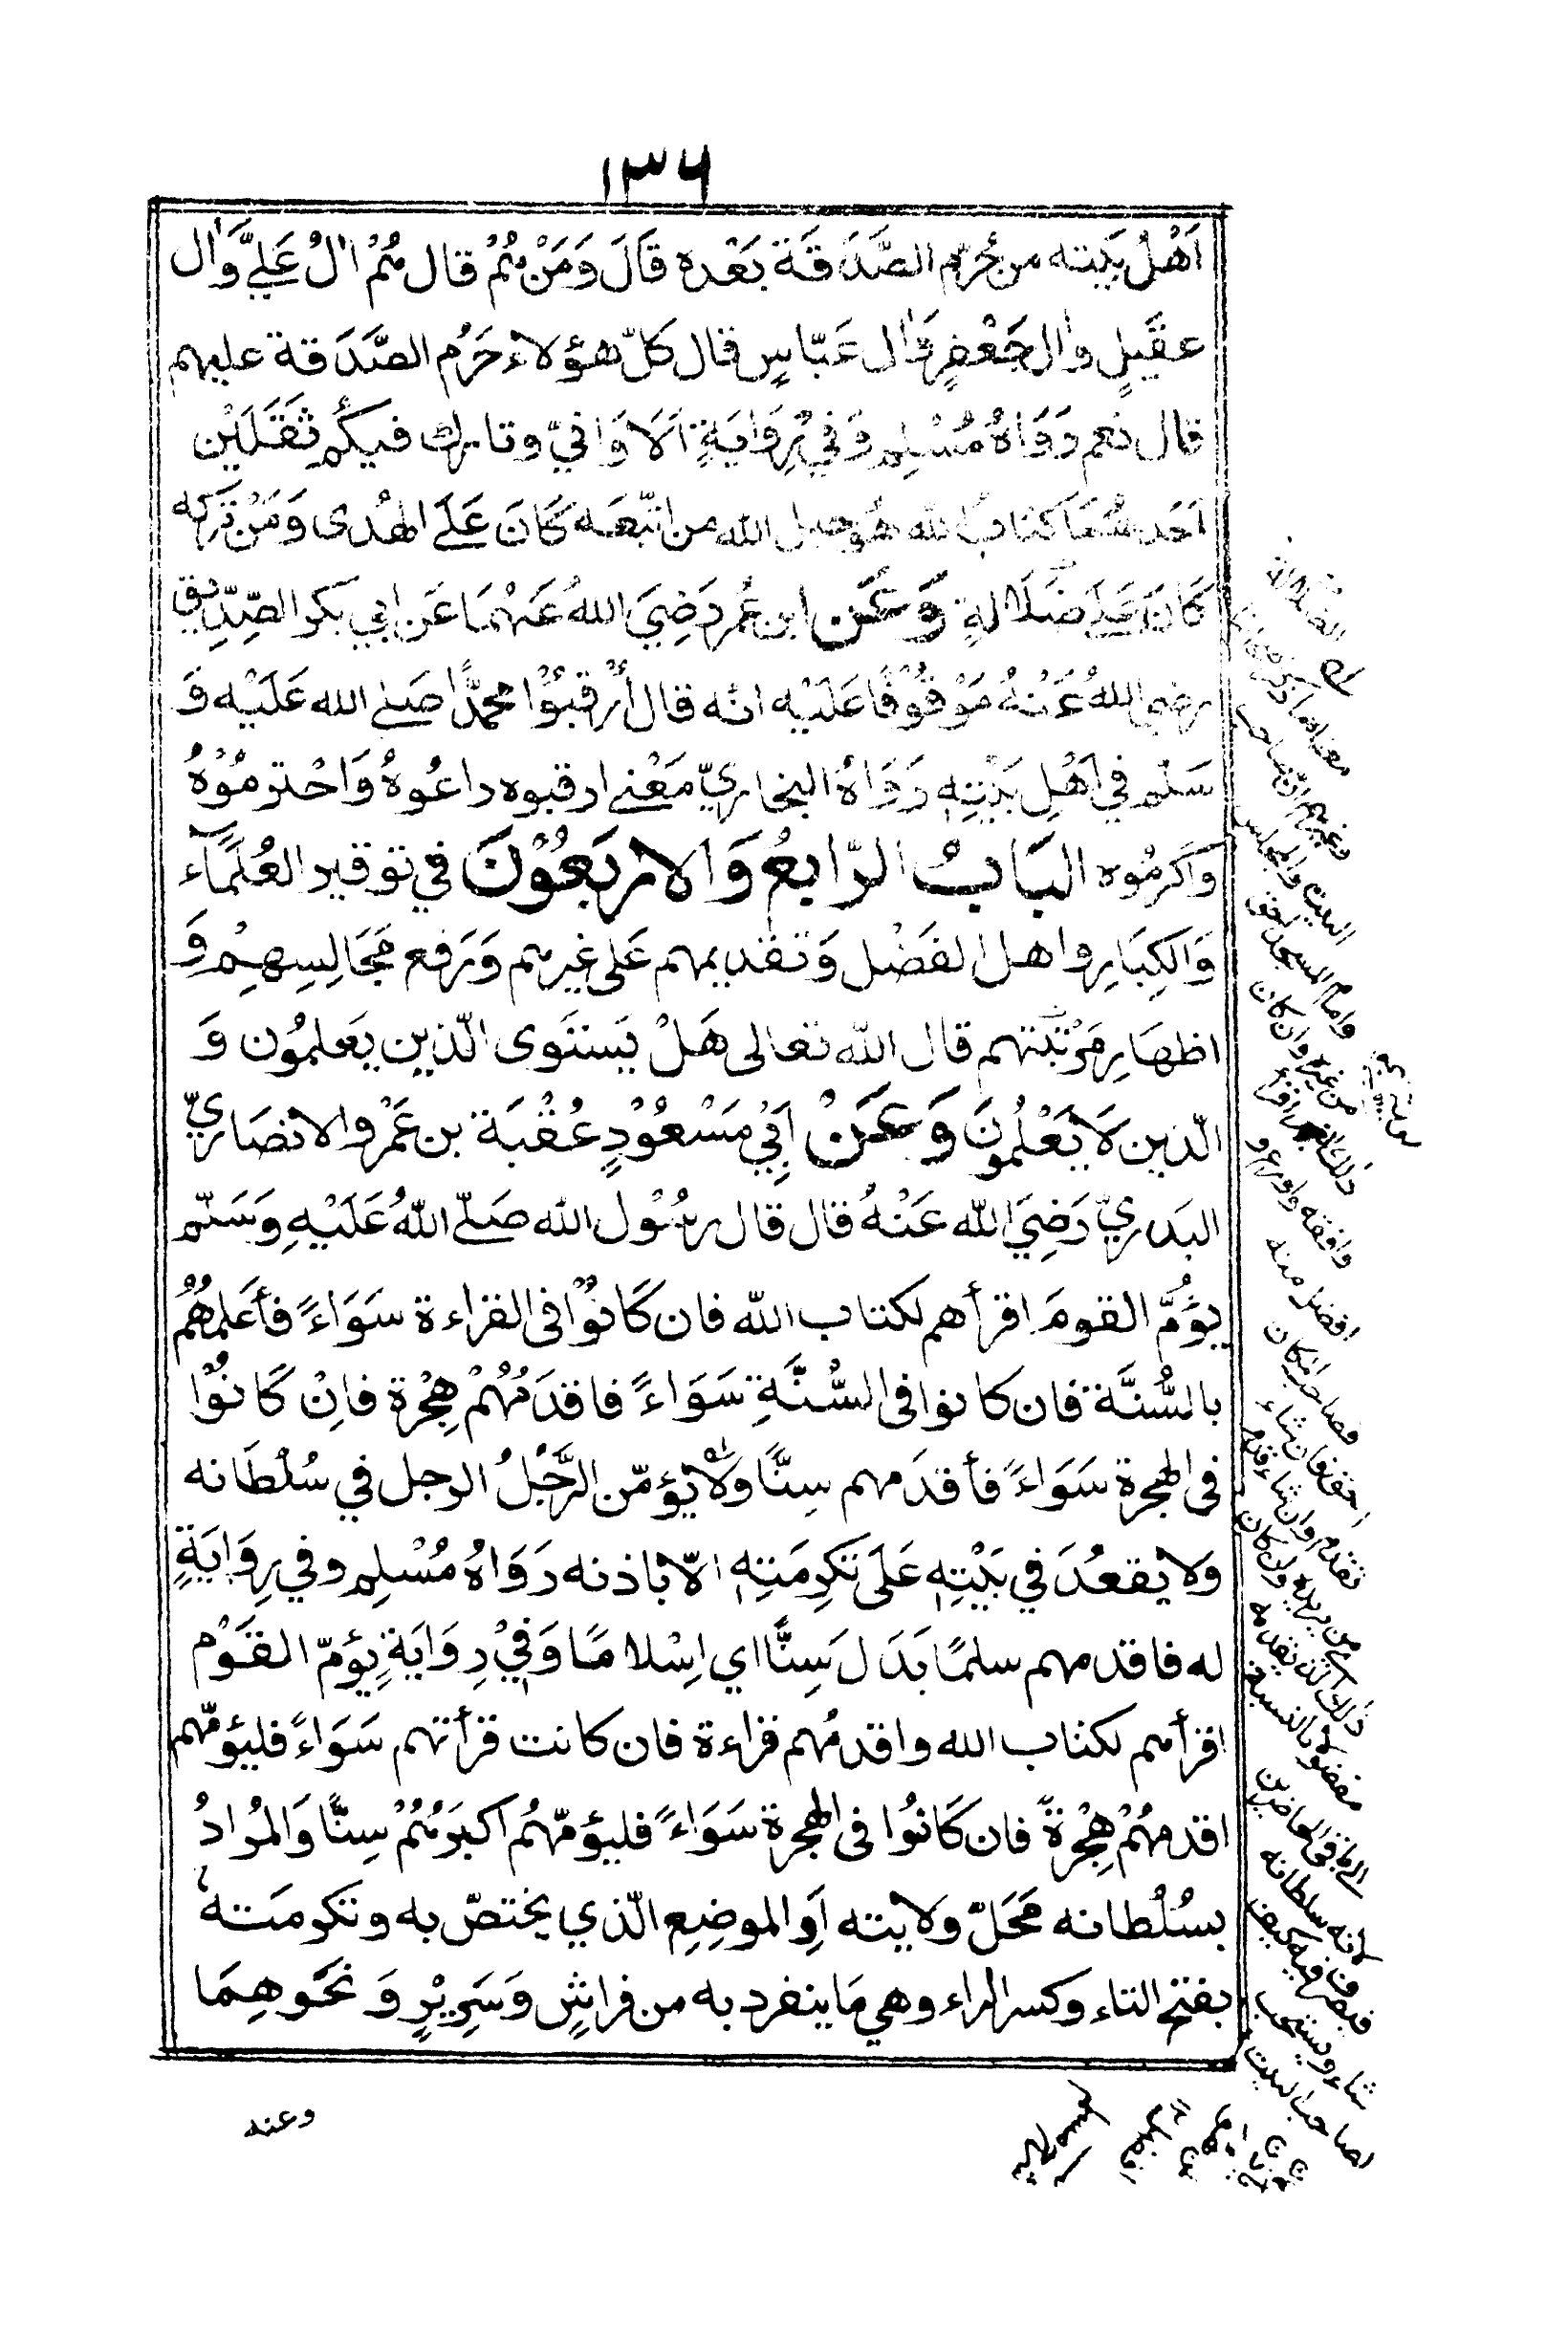 ١٣٦
اَهْلُ بَيْته من حُرِّم الصَّدَقَة بَعْده قَالَ وَمَنْ هُمْ قال هُمْ اٰلُ عَلِيٍّ وَاٰل
عقَيلٍ واٰل جَعْفرٍ وَاٰل عَبّاسٍ قال كلّ هؤلاء حَرُم الصَّدَقة عليهم
قال نعم رَوَاهُ مُسْلِم وَفي رِوَايَةٍ اَلَا وَاِنيّ وتارك فيكُم ثَقَلَيْن
اَحَدهُمَا كتابُ الله هُو حبل الله من اتّبَعَه كَانَ عَلَے الهُدى وَمَنْ تَركه
كَانَ عَلے ضَلَالةٍ وَعَن ابن عُمر رَضِيَ اللهُ عَنْهُمَا عَن ابي بكر الصِّدِّيق
رضي اللهُ عَنْهُ مَوْقُوْفًا عَلَيْه انّه قال اُرْقبُوْا محمدًّا صَلے الله عَلَيْه وَ
سَلم في اَهْلِ بَيْتِهٖ رَوَاهُ البخاريّ مَعْنے ارقبوه راعُوهُ وَاحْترمُوْهُ
وَاَكرمُوه البَابُ الرّابعُ وَالاربَعُوْنَ في توقير العُلَمَآء
وَالكِبَارِ واهل الفَضْل وَتقديمهم عَلى غيرهم وَرَفع مَجَالِسِهِمْ وَ
اظهَارِ مَرْتبَتهم قال الله تعالى هَلْ يَستَوى الّذين يَعلمُون وَ
الّذين لَا يَعْلَمُونَ وَعَنْ اَبِيْ مَسْعُوْدٍ عُقْبَة بن عَمْرو الانصَاريّ
البَدريّ رَضِيَ الله عَنْهُ قال قال رسُوْل الله صَلّے اللهُ عَلَيْهِ وَسَلّم
يَؤُمُّ القومَ اقرأهم لكتاب الله فان كَانُوْا فى القراءة سَوَاءً فأعَلمهُمْ
بالسُّنَّة فان كانوا فى السُّنَّةِ سَوَاءً فاقدَمُهُمْ هِجْرة فاِنْ كَانُوْا
فى الهجرة سَوَاءً فأقدَمهم سِنًّا ولَا يؤمّن الرَّجُلُ الرجل في سُلْطَانه
ولا يقعُدَ في بَيْتِهٖ عَلَى تَكرِمَتِهٖ اِلّا باذنه رَوَاهُ مُسْلِم وفي رِوَايَةٍ
له فاقدمهم سلمًا بَدَل سِنًّا اي اِسْلامًا وَفِيْ رِوَايَةٍ يؤمّ القَوْم
اقرأهم لكتاب الله واقدمُهم قراءة فان كانت قرأتهم سَوَاءً فليؤمّهم
اقدمهُمْ هِجْرةً فان كَانُوا فى الهجرة سَوَاءً فليؤمّهُم اكبَرَهُمْ سِنًّا وَالمُرادُ
بسُلْطانه مَحَلّ ولايته اَوِ الموضِعِ الّذي يختصّ به وتكرمَته
بفتح التاء وكسر الراء وهي مَا ينفرد به من فراشٍ وَسَرِيْرٍ وَنَحَوهِمَا
وعنه
وامام المسجد احق
من غيره وان كان
افضل منه
فصاحب المكان
احق فان شاء
تقدم وان شاء قدم
من يريده وان كان
ذلك الذى يقدمه
مفضولا بالنسبة
الى باقى الحاضرين
لانه سلطانه
فيتصرف فيه كيف
شاء ويستحب
لصاحب البيت